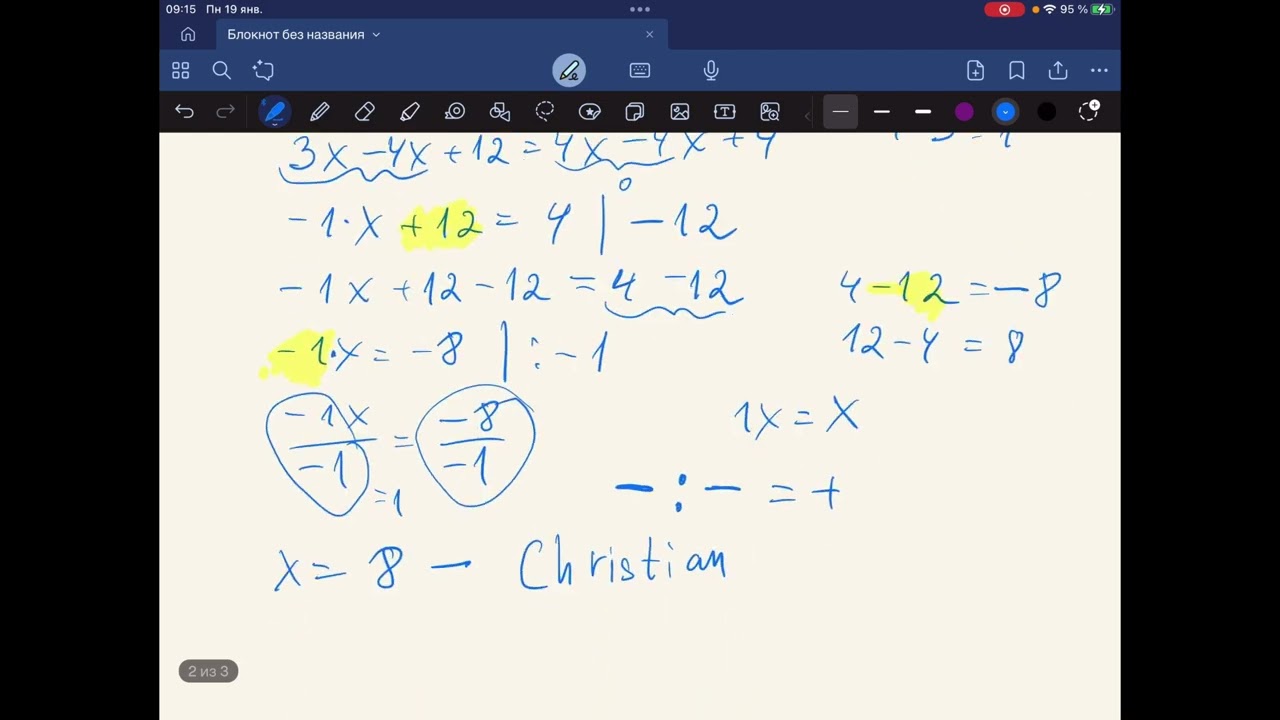 09:15 Пн 19 янв.
95 %
Блокнот без названия
3x -4x +12 = 4x -4x +4
0
-1·x +12 = 4 | -12
-1x +12 -12 = 4 -12
4 -12 = -8
12 - 4 = 8
-1·x = -8 | : -1
-1x / -1 = -8 / -1
=1
1x = x
- : - = +
x = 8 - Christian
2 из 3